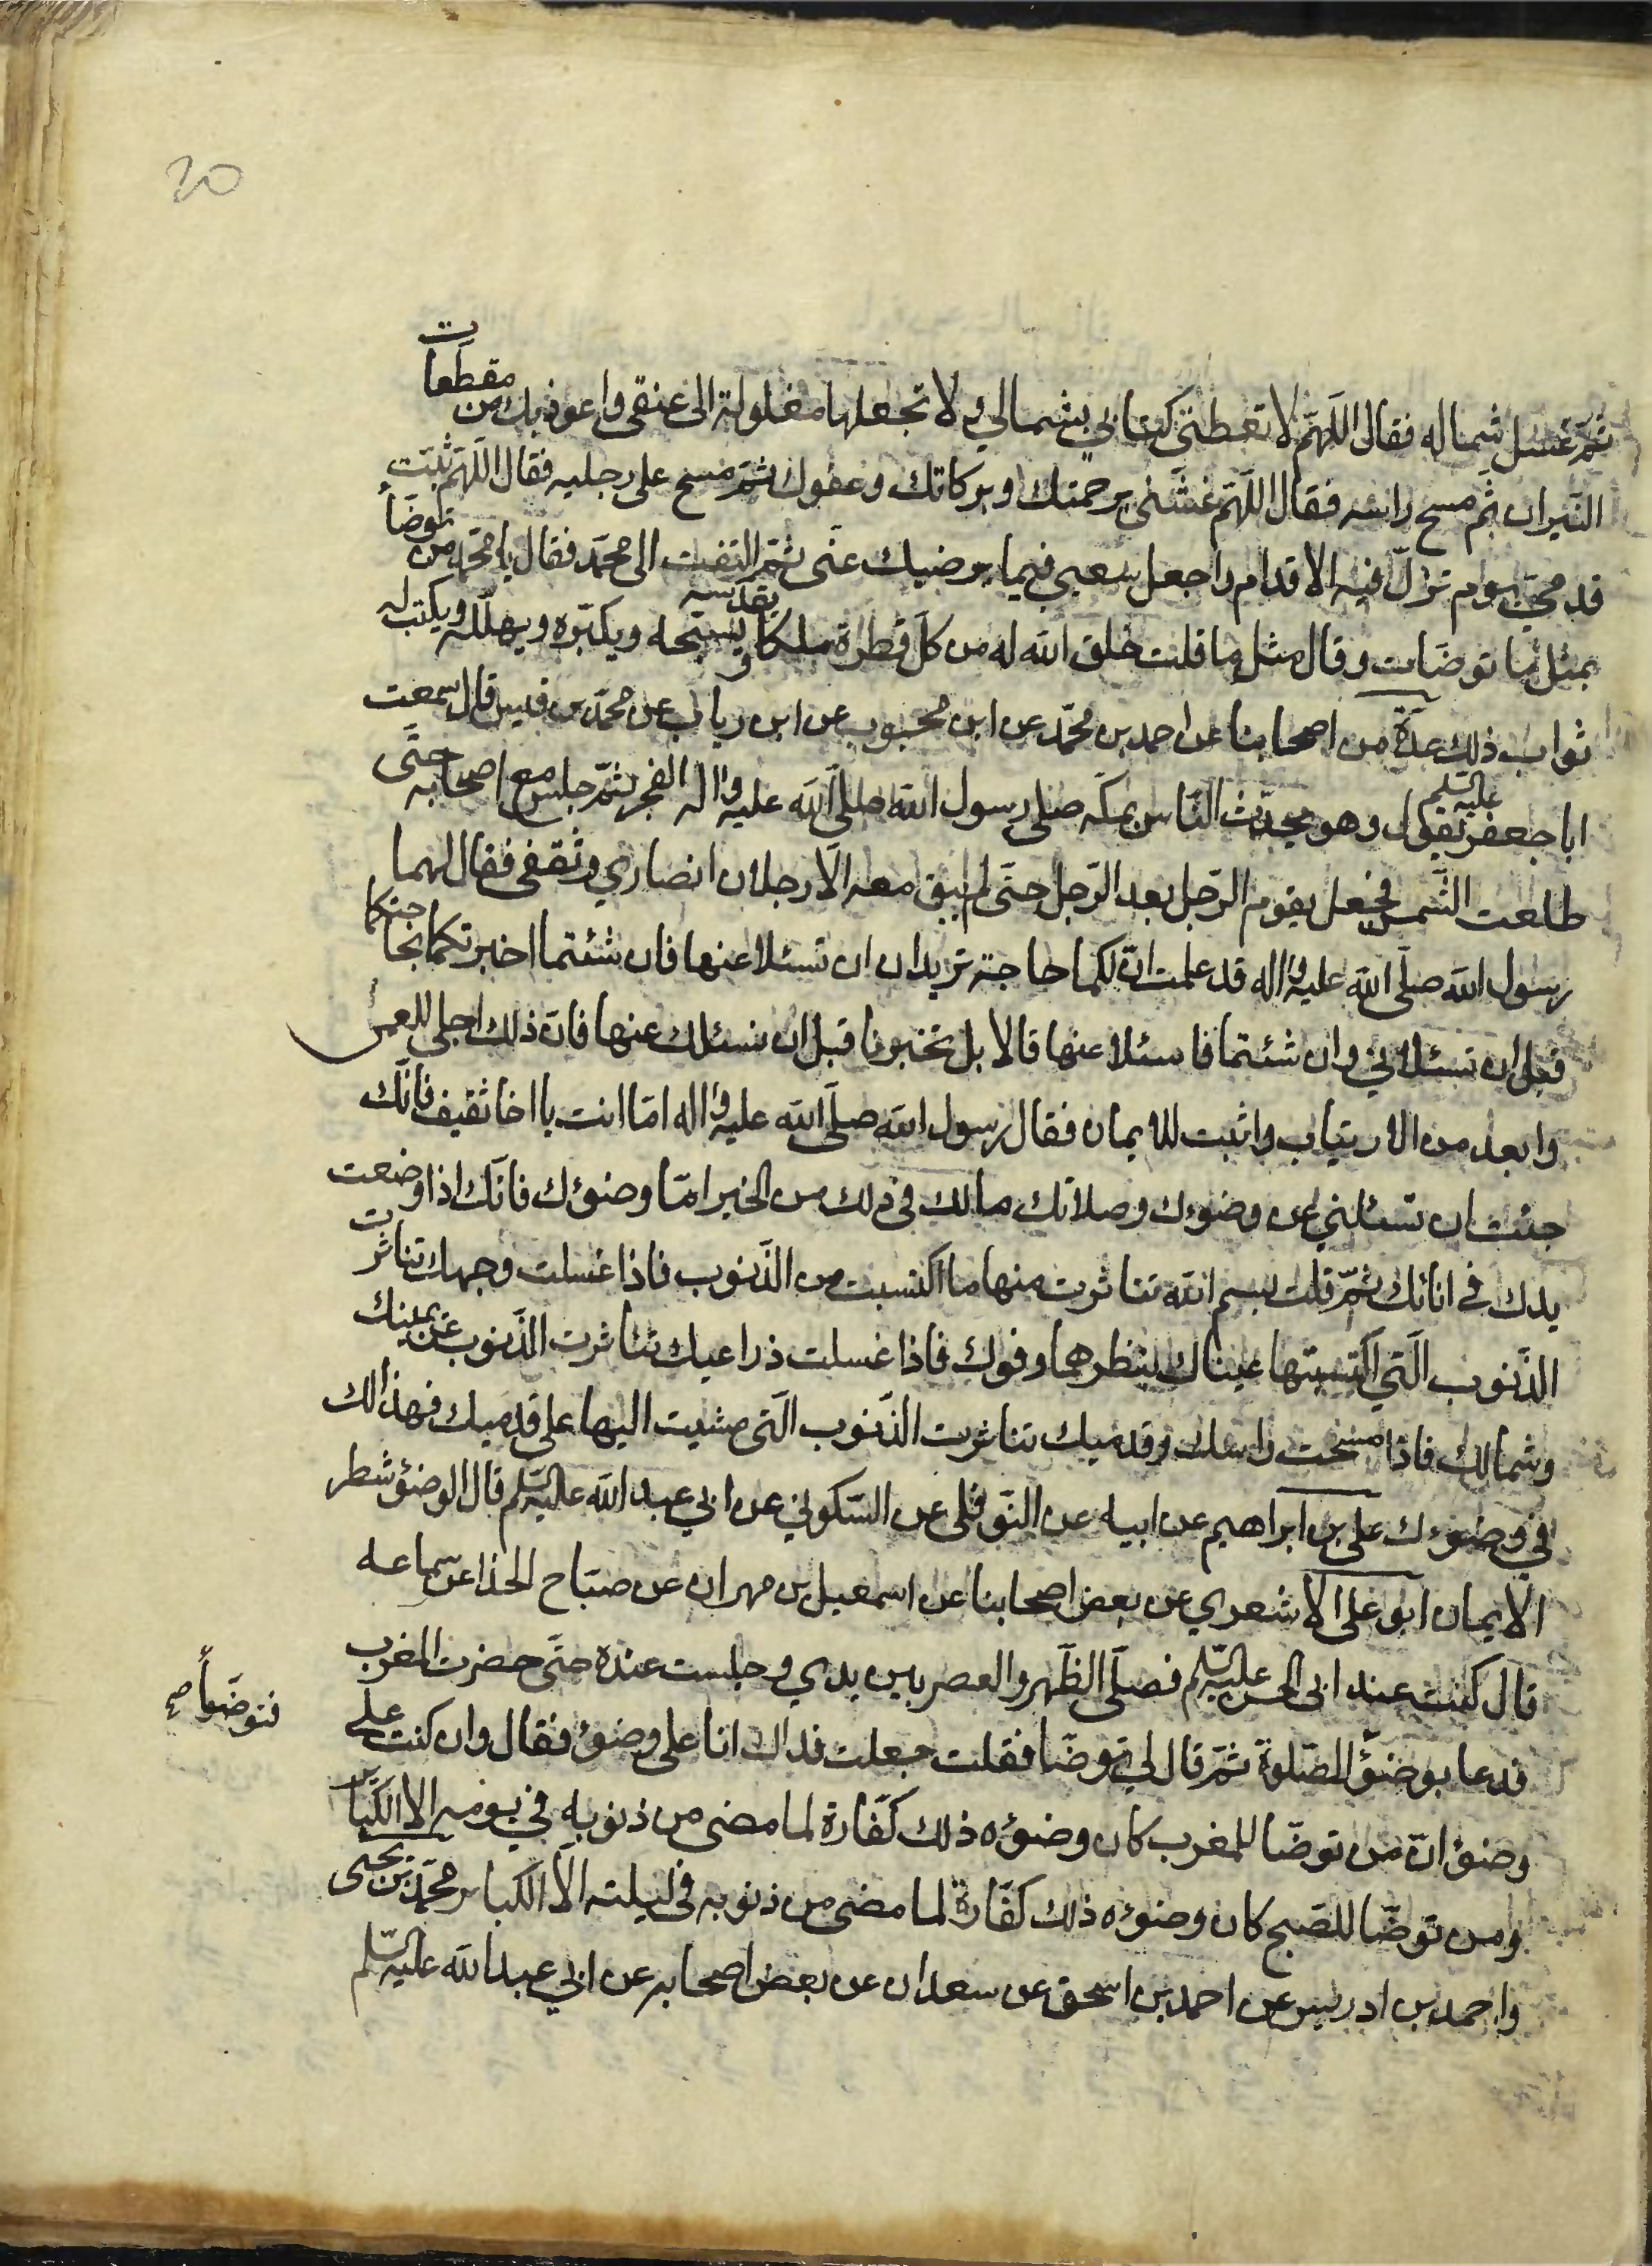 20
ثمّ غسل شماله فقال اللّهمّ لا تعطنى كتابي بشمالي ولا تجعلها مغلولة الى عنقى واعوذ بك من مقطعات
النّيران ثم مسح راسه فقال اللّهمّ غشّنى برحمتك وبركاتك وعفوك ثمّ مسح على رجليه فقال اللّهمّ ثبّت
قدمىّ يوم تزلّ فيه الاقدام واجعل سعيي فيما يرضيك عنّى ثمّ التفت الى محمّد فقال يا محمّد من توضّأ
بمثل ما توضّات وقال مثل ما قلت خلق الله له من كلّ قطرة ملكا يقدّسه ويسبّحه ويكبّره ويهلّله ويكتب له
ثواب ذلك عدّة من اصحابنا عن احمد بن محمّد عن ابن محبوب عن ابن رياب عن محمّد بن قيس قال سمعت
ابا جعفر عليه السّلم يقول وهو يحدّث النّاس بمكّه صلى رسول الله صلّى الله عليه واله الفجر ثمّ جلس مع اصحابه حتّى
طلعت الشّمس فجعل يقوم الرّجل بعد الرّجل حتّى لم يبق معه الّا رجلان انصاري وثقفى فقال لهما
رسول الله صلّى الله عليه واله قد علمت انّ لكما حاجة تريدان ان تسئلا عنها فان شئتما اخبرتكما بحاجتكما
قبل ان تسئلاني وان شئتما فاسئلا عنها قالا بل تخبرنا قبل ان نسئلك عنها فانّ ذلك اجلى للعمى
وابعد من الارتياب واثبت للايمان فقال رسول الله صلّى الله عليه واله امّا انت يا اخا ثقيف فانّك
جئت ان تسئلني عن وضوءك وصلاتك مالك في ذلك من الخير امّا وضوؤك فانّك اذا وضعت
يدك في انائك ثمّ قلت بسم الله تناثرت منها ما اكتسبت من الذّنوب فاذا غسلت وجهك تناثرت
الذّنوب الّتي اكتسبتها عيناك بنظرهما وفوك فاذا غسلت ذراعيك تناثرت الذّنوب عن يمينك
وشمالك فاذا مسحت راسك وقدميك تناثرت الذّنوب الّتى مشيت اليها على قدميك فهذا لك
في وضوءك على بن ابراهيم عن ابيه عن النّوفلى عن السّكوني عن ابي عبد الله عليه السّلم قال الوضؤ شطر
الايمان ابو على الاشعري عن بعض اصحابنا عن اسمعيل بن مهران عن صبّاح الحذا عن سماعه
قال كنت عند ابى الحسن عليه السّلم فصلّى الظّهر والعصر بين يدي وجلست عنده حتّى حضرت المغرب
فدعا بوضؤ الصّلوة ثمّ قال لي توضّا فقلت جعلت فداك انا على وضؤ فقال وان كنت على
فتوضّأ صح
وضؤ انّ من توضّا للمغرب كان وضؤه ذلك كفّارة لما مضى من ذنوبه في يومه الا الكبائر
ومن توضّا للصّبح كان وضوءه ذلك كفّارة لما مضى من ذنوبه فى ليلته الّا الكبائر محمّد بن يحيى
واحمد بن ادريس عن احمد بن اسحق عن سعدان عن بعض اصحابه عن ابي عبد الله عليه السّلم